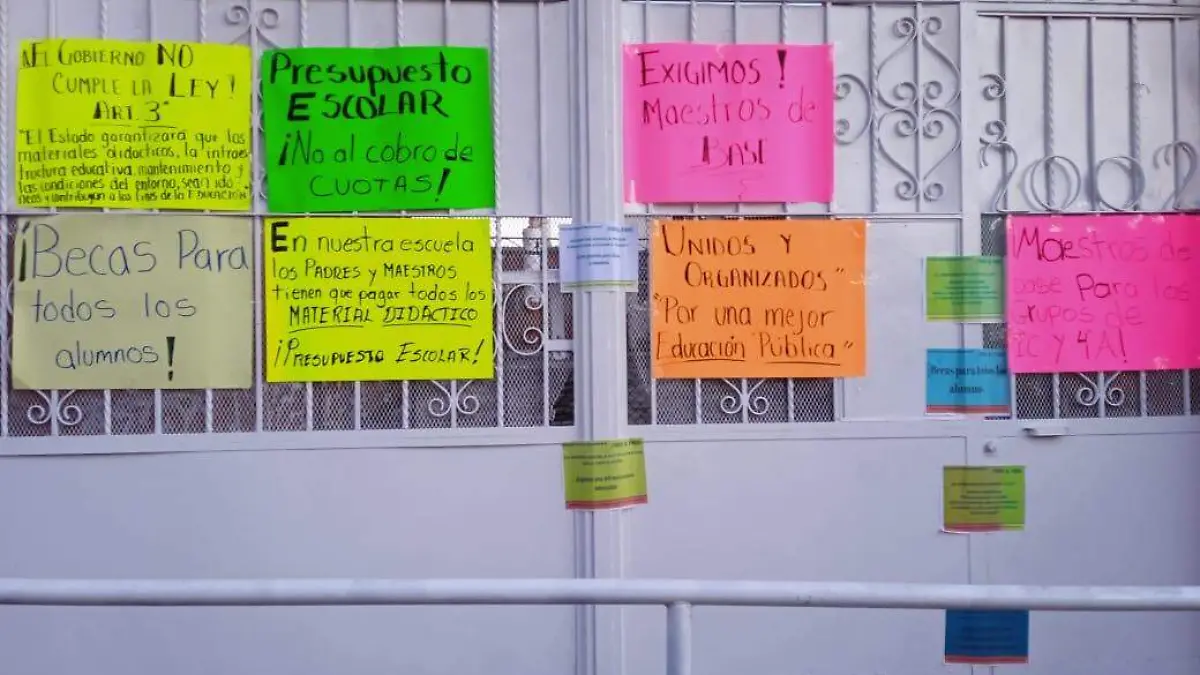 ¡EL GOBIERNO NO
CUMPLE LA LEY!
ART. 3°
"El Estado garantizará que los
materiales didácticos, la infraes
tructura educativa, mantenimiento y
las condiciones del entorno, sean idó
neos y contribuyan a los fines de la EDUCACIÓN"
Presupuesto
ESCOLAR
¡No al cobro de
CUOTAS!
EXIGIMOS!
Maestros de
BASE
2002
¡Becas Para
todos los
alumnos!
En nuestra escuela
los PADRES y MAESTROS
tienen que pagar todos los
MATERIAL DIDÁCTICO
¡PRESUPUESTO ESCOLAR!
UNIDOS Y
ORGANIZADOS"
"Por una mejor
Educación Pública"
¡Maestros de
base Para los
Grupos de
1C y 4A!
Becas para todos los
alumnos